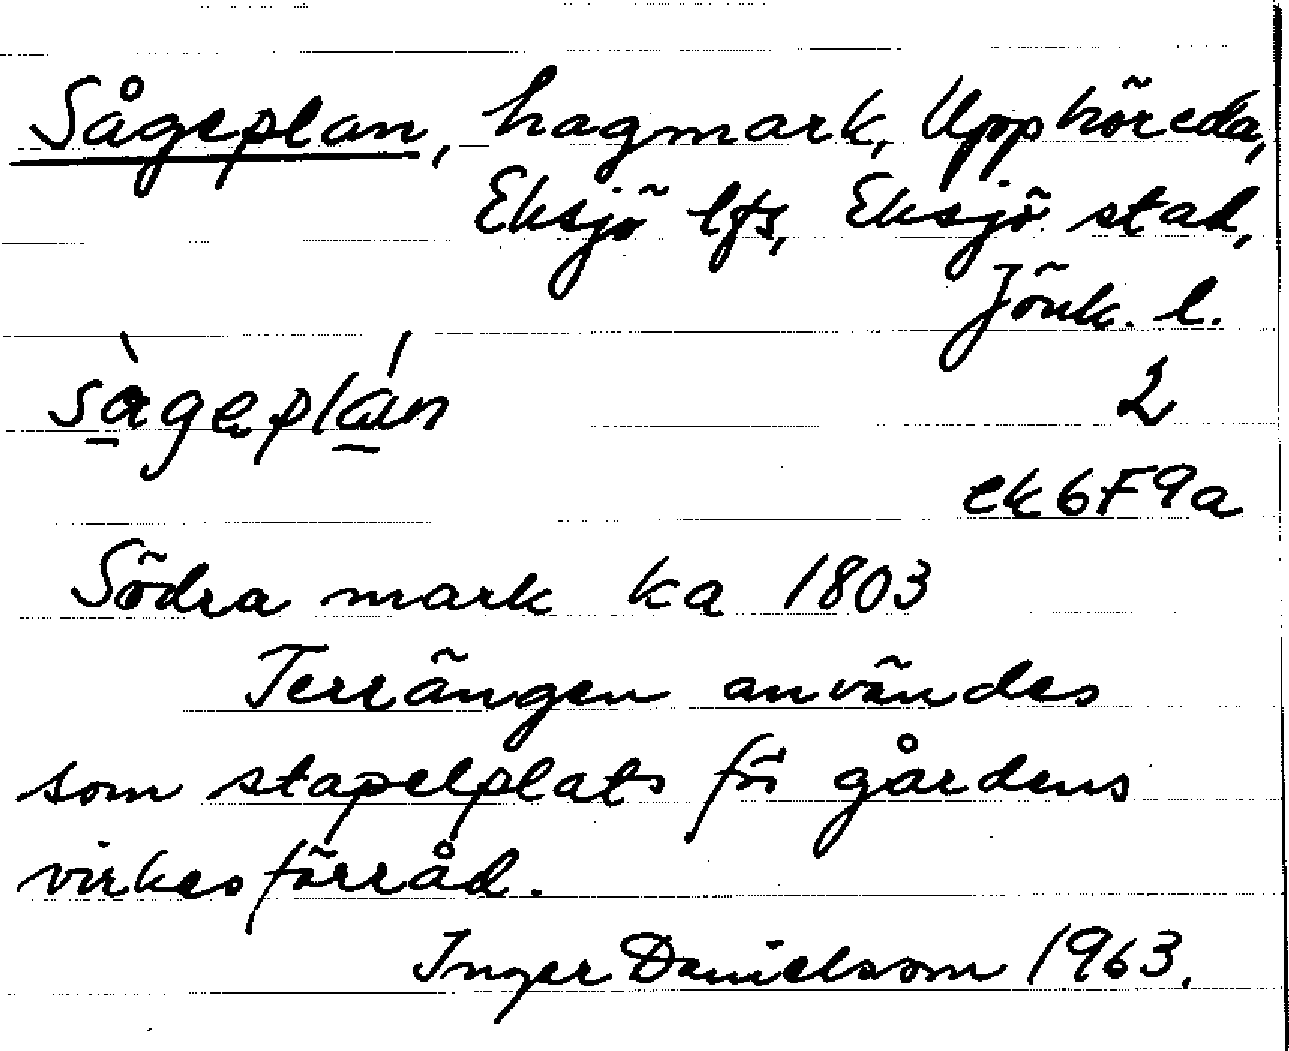 Sågeplan, hagmark, Upphöreda,
Eksjö lfs, Eksjö stad,
Jönk. l.
sàgeplán
2
ek6F9a
Södra mark ka 1803
Terrängen användes
som stapelplats för gårdens
virkesförråd.
Inger Danielsson 1963.